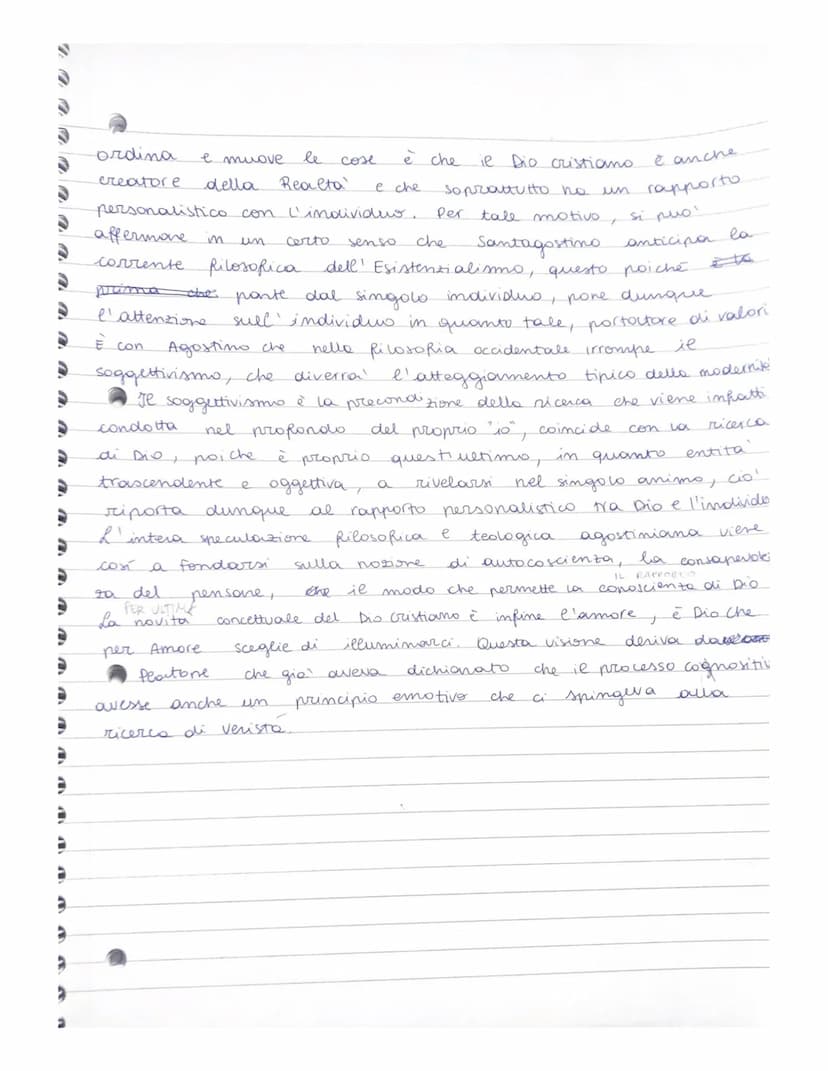 ordina e muove le cose è che il Dio cristiano è anche
creatore della Realtà e che soprattutto ha un rapporto
personalistico con l'individuo. Per tale motivo, si può
affermare in un certo senso che Santagostino anticipa la
corrente filosofica dell'Esistenzialismo, questo poiché
prima che parte dal singolo individuo, pone dunque
l'attenzione sull'individuo in quanto tale, portatore di valori
È con Agostino che nella filosofia occidentale irrompe il
soggettivismo, che diverrà l'atteggiamento tipico della modernità
Il soggettivismo è la precondizione della ricerca che viene infatti
condotta nel profondo del proprio "io", coincide con la ricerca
di Dio, poiche è proprio quest'ultimo, in quanto entità
trascendente e oggettiva, a rivelarsi nel singolo animo, ciò
riporta dunque al rapporto personalistico tra Dio e l'individo
L'intera speculazione filosofica e teologica agostiniana viene
così a fondarsi sulla nozione di autocoscienza, la consapevolez
za del pensare, che il modo che permette la conoscienza di Dio
IL RAPPORTO
PER ULTIMA
La novità concettuale del Dio Cristiano è infine l'amore, è Dio che
per Amore sceglie di illuminarci. Questa visione deriva da
Platone che già aveva dichiarato che il processo cognositiv
avesse anche un principio emotivo che ci spingeva alla
ricerca di veristà.